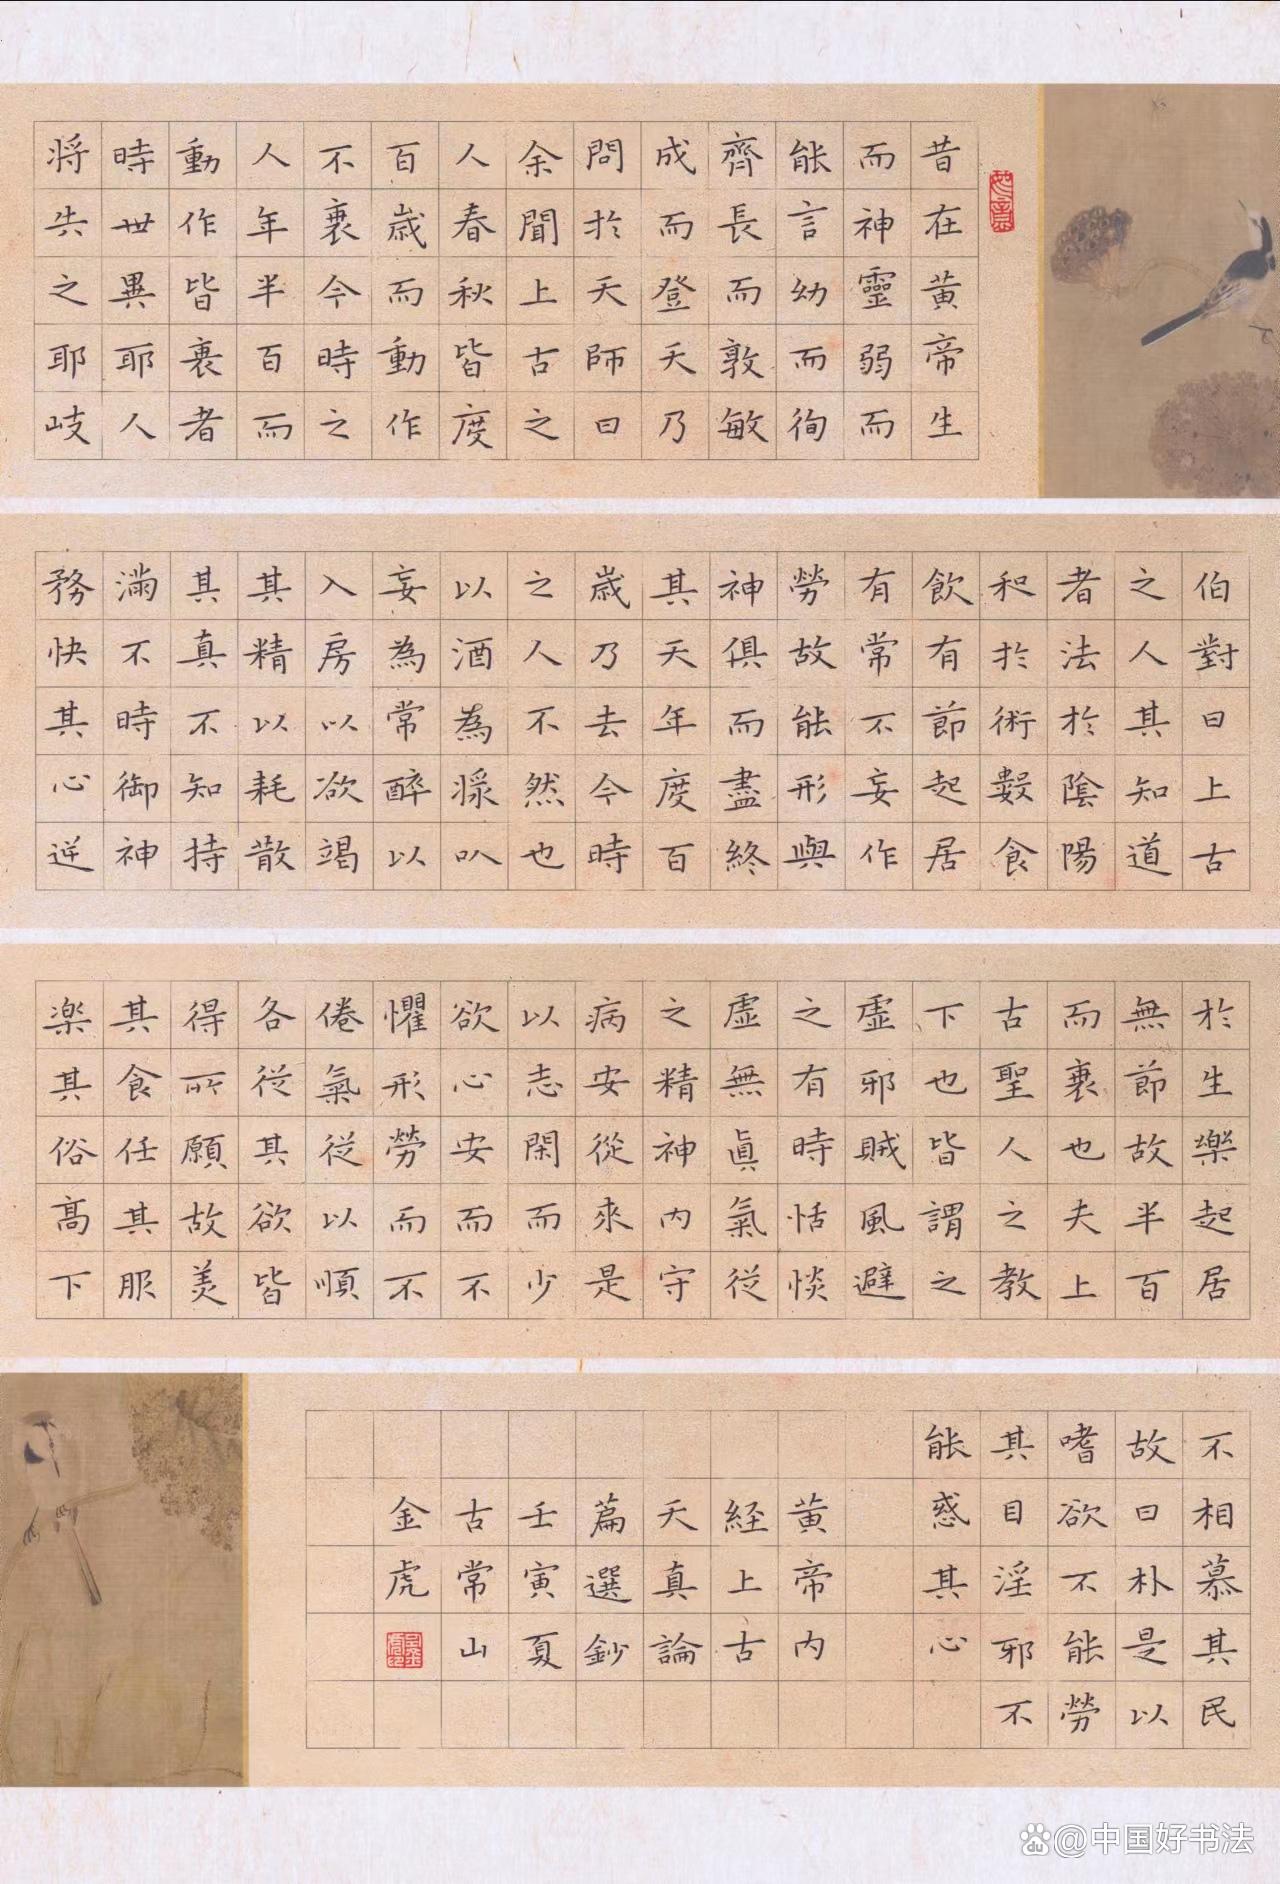 昔在黄帝生
而神靈弱而
能言幼而徇
齊長而敦敏
成而登天乃
問扵天師曰
余聞上古之
人春秋皆度
百歲而動作
不衰今時之
人年半百而
動作皆衰者
時世異耶人
将失之耶岐
伯對曰上古
之人其知道
者法扵陰陽
和扵術數食
飲有節起居
有常不妄作
勞故能形與
神俱而盡終
其天年度百
歲乃去今時
之人不然也
以酒為漿以
妄為常醉以
入房以欲竭
其精以耗散
其真不知持
滿不時御神
務快其心逆
扵生樂起居
無節故半百
而衰也夫上
古聖人之教
下也皆謂之
虛邪賊風避
之有時恬惔
虛無真氣從
之精神内守
病安從來是
以志閑而少
欲心安而不
懼形勞而不
倦氣從以順
各從其欲皆
得所願故美
其食任其服
楽其俗髙下
不相慕其民
故曰朴是以
嗜欲不能勞
其目淫邪不
能惑其心
黄帝内
經上古
天真論
篇選鈔
壬寅夏
古常山
金虎
@中国好书法